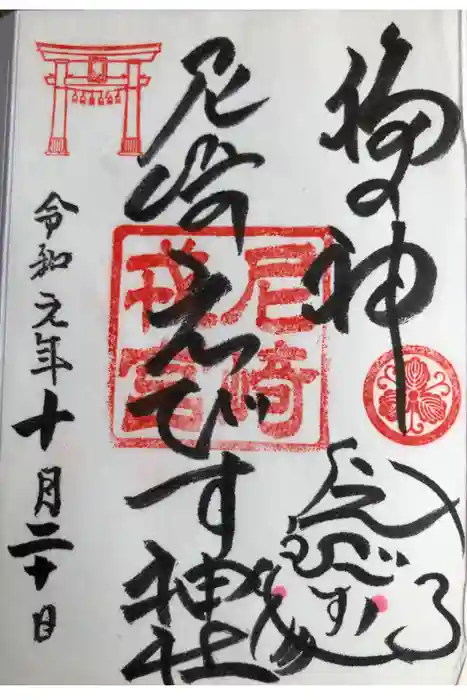 福の神
尼崎えびす神社
尼崎
戎宮
えびす
令和元年十月二十日